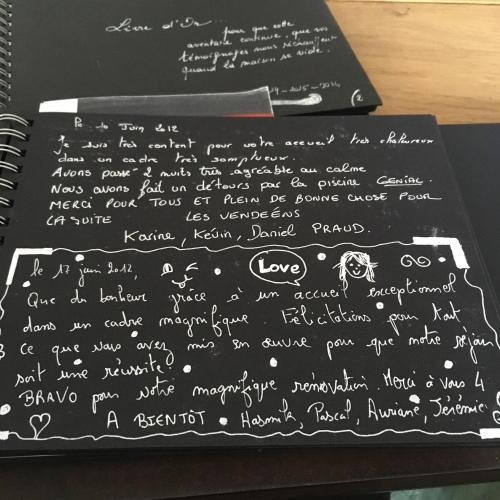 Livre d'Or...
pour que cette
aventure continue, que vos
témoignages nous réchauffent
quand la maison se vide.
2014 - 2015 - 2016
(2
Juin 2012
Je suis très content pour votre accueil très chaleureux
dans un cadre très somptueux.
Avons passé 2 nuits très agréable au calme
Nous avons fait un détours par la piscine GENIAL.
MERCI POUR TOUS ET PLEIN DE BONNE CHOSE POUR
LA SUITE LES VENDEÉNS
Karine, Kevin, Daniel PRAUD.
le 17 juin 2012, Love
Que du bonheur grâce à un accueil exceptionnel
dans un cadre magnifique. Félicitations pour tout
ce que vous avez mis en œuvre pour que notre séjour
soit une réussite.
BRAVO pour votre magnifique rénovation. Merci à vous 4
A BIENTÔT. Hasmik, Pascal, Auriane, Jérémie.